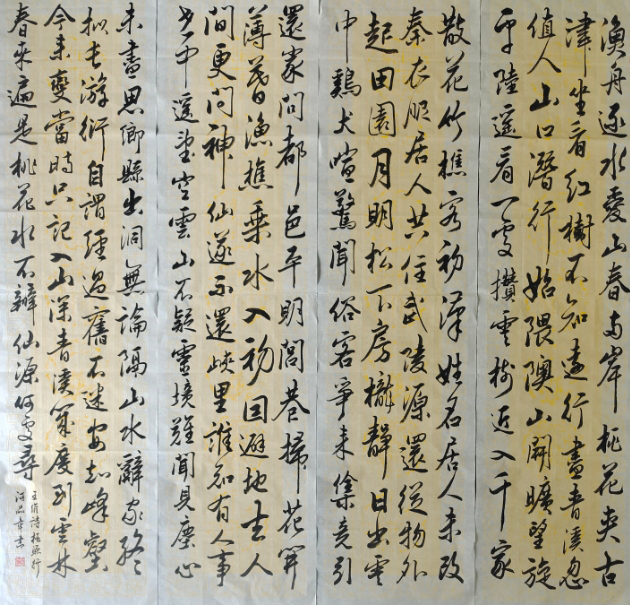 漁舟逐水愛山春兩岸桃花夾古
津坐看紅樹不知遠行盡青溪忽
值人山口潛行始隈隩山開曠望旋
平陸遙看一處攢雲樹近入千家
散花竹樵客初漢姓名居人未改
秦衣服居人共住武陵源還從物外
起田園月明松下房櫳靜日出雲
中鷄犬喧驚聞俗客爭來集競引
還家問都邑平明閭巷掃花開
薄暮漁樵乘水入初因避地去人
間更問神仙遂不還峽里誰知有人事
世中遙望空雲山不疑靈境難聞見塵心
未盡思鄉縣出洞無論隔山水辭家終
擬長游衍自謂經過舊不迷安知峰壑
今來變當時只記入山深青溪幾度到雲林
春來遍是桃花水不辨仙源何處尋
王維詩桃源行